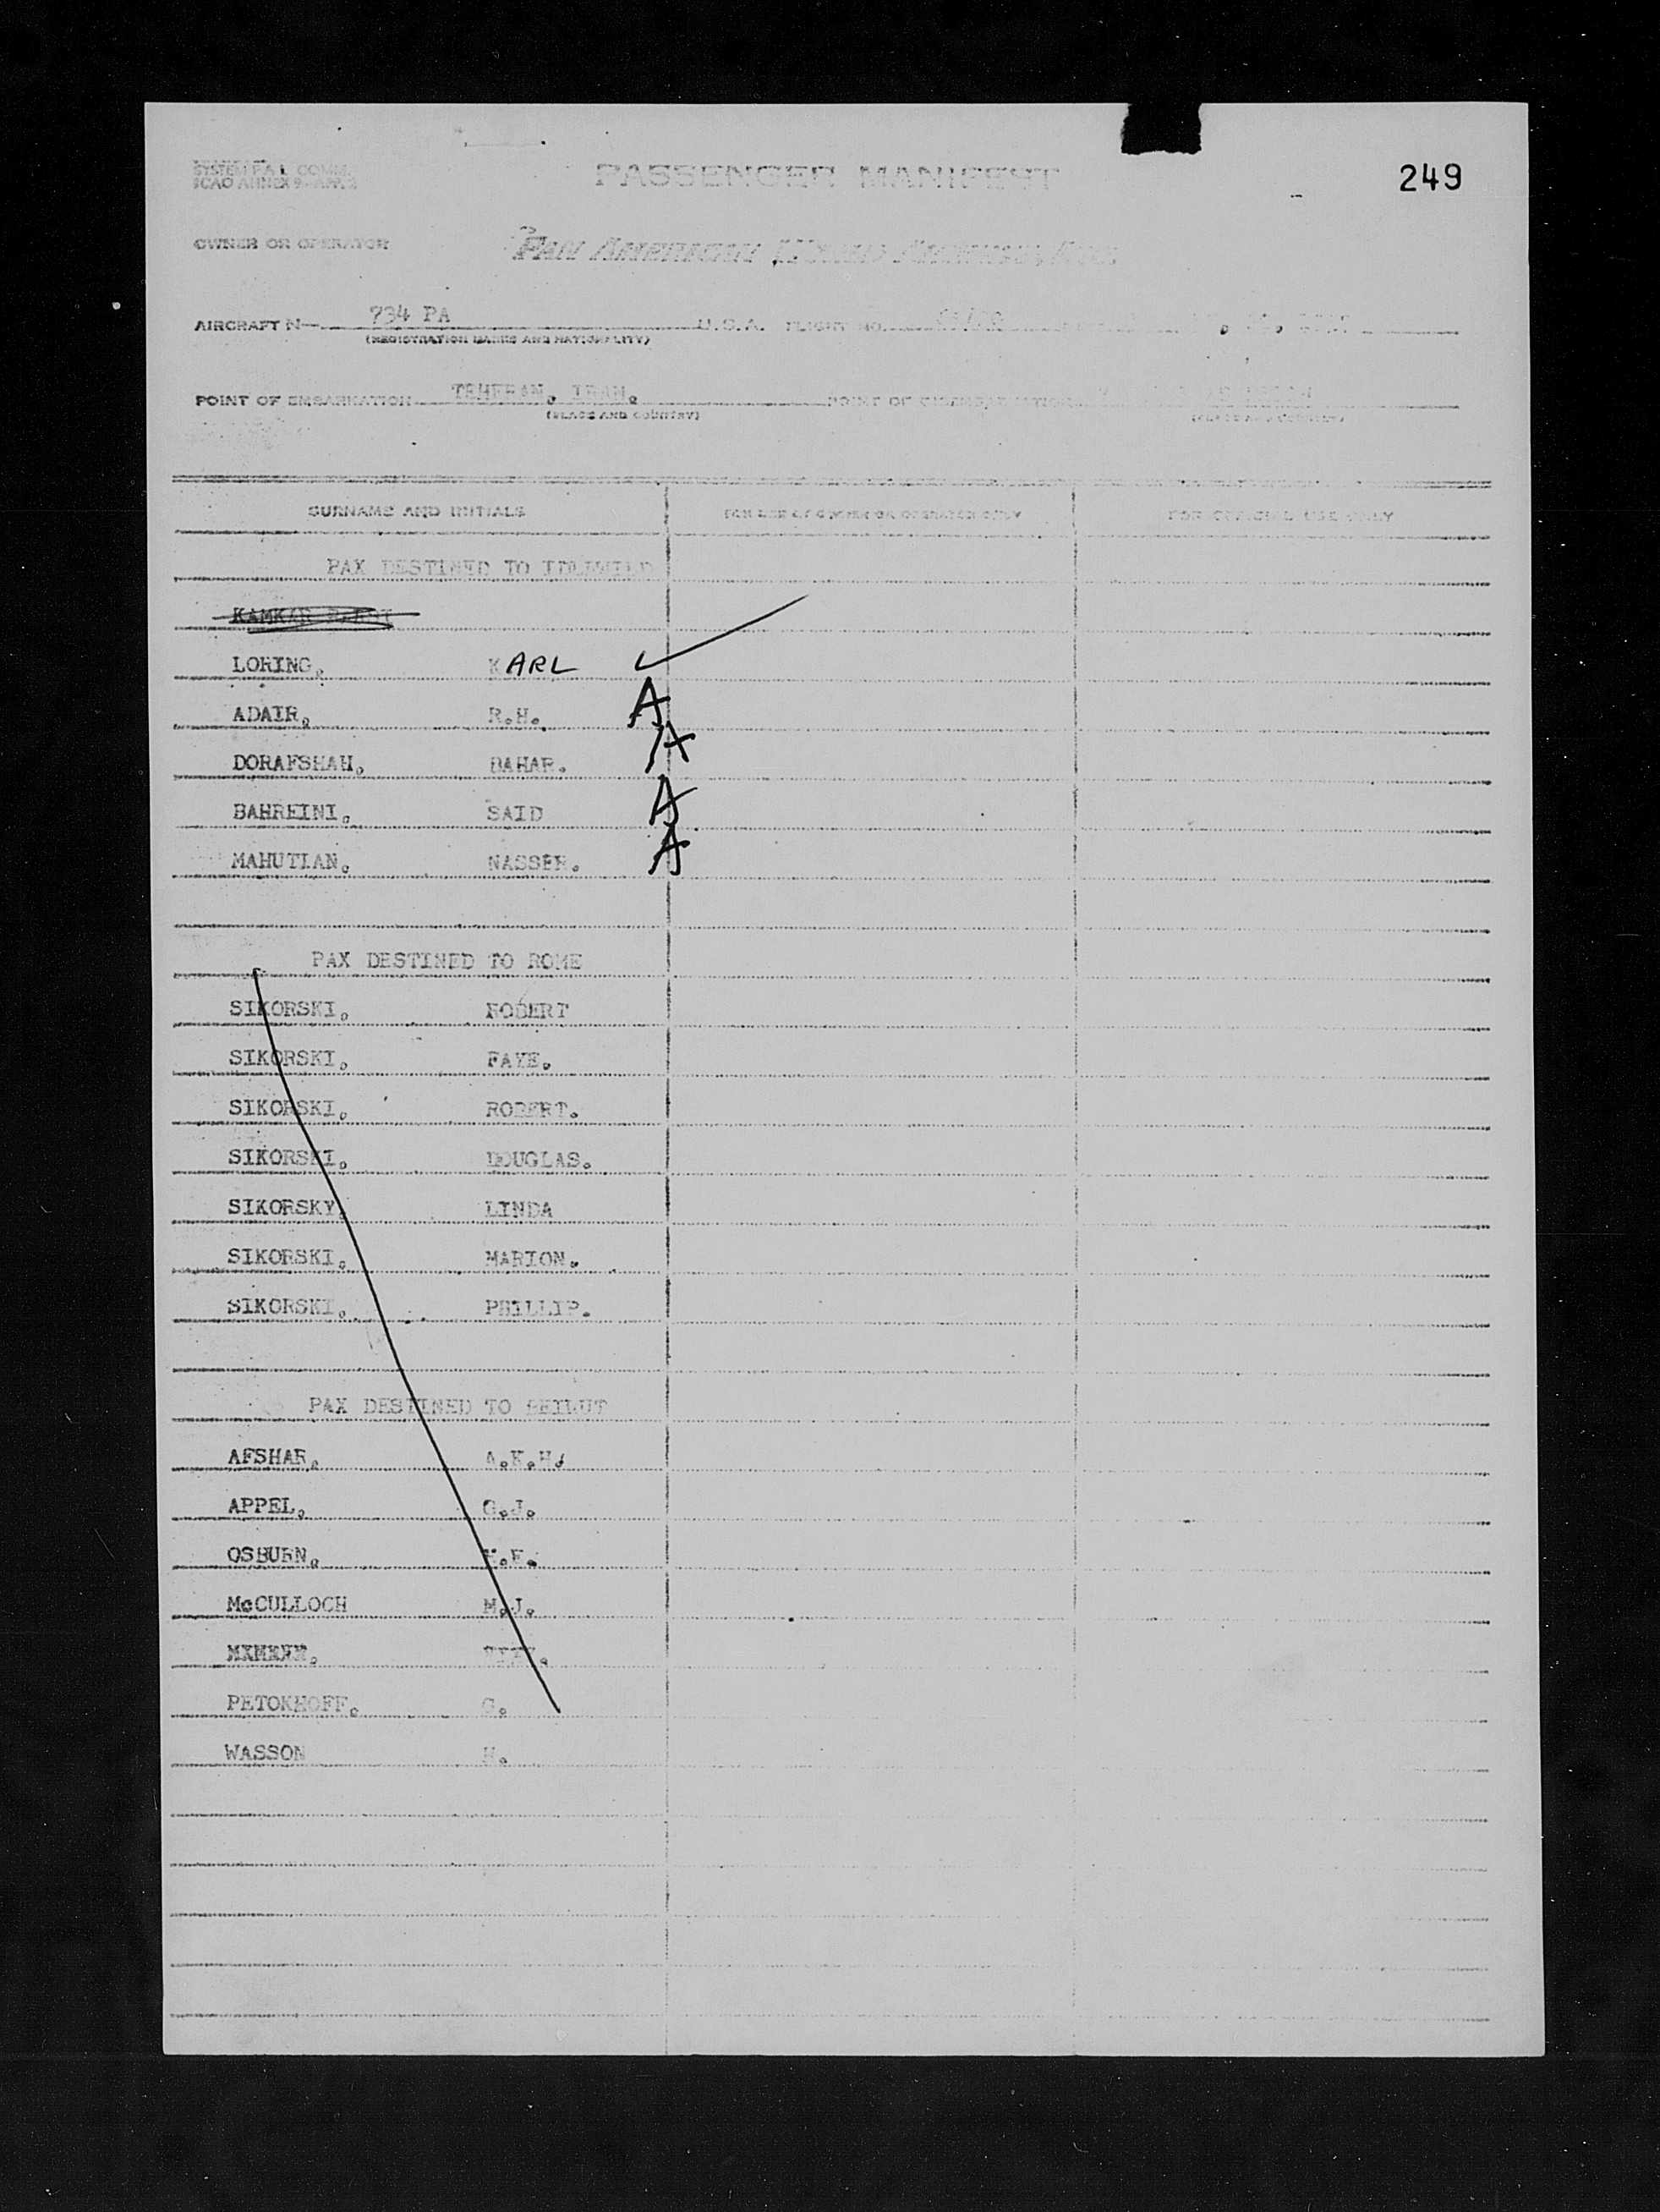 SYSTEM P.A.L. COMM.
ICAO ANNEX 9-APP. 3
PASSENGER MANIFEST
249
OWNER OR OPERATOR
PAN AMERICAN WORLD AIRWAYS, INC.
AIRCRAFT N 734 PA U.S.A. FLIGHT NO.
(REGISTRATION MARKS AND NATIONALITY)
POINT OF EMBARKATION TEHERAN, IRAN. POINT OF DISEMBARKATION
(PLACE AND COUNTRY) (PLACE AND COUNTRY)
SURNAME AND INITIALS FOR USE OF OWNER OR OPERATOR ONLY FOR OFFICIAL USE ONLY
PAX DESTINED TO IDLEWILD
KAMKAR
LORING, KARL
ADAIR, R.H. A
DORAFSHAH, BAHAR. A
BAHREINI, SAID A
MAHUTIAN, NASSER. A
PAX DESTINED TO ROME
SIKORSKI, ROBERT
SIKORSKI, FAYE.
SIKORSKI, ROBERT.
SIKORSKI, DOUGLAS.
SIKORSKY, LINDA
SIKORSKI, MARION.
SIKORSKI, PHILLIP.
PAX DESTINED TO BEIRUT
AFSHAR, A.K.H.
APPEL, G.J.
OSBURN,
McCULLOCH M.J.
PETOKHOFF, G.
WASSON H.